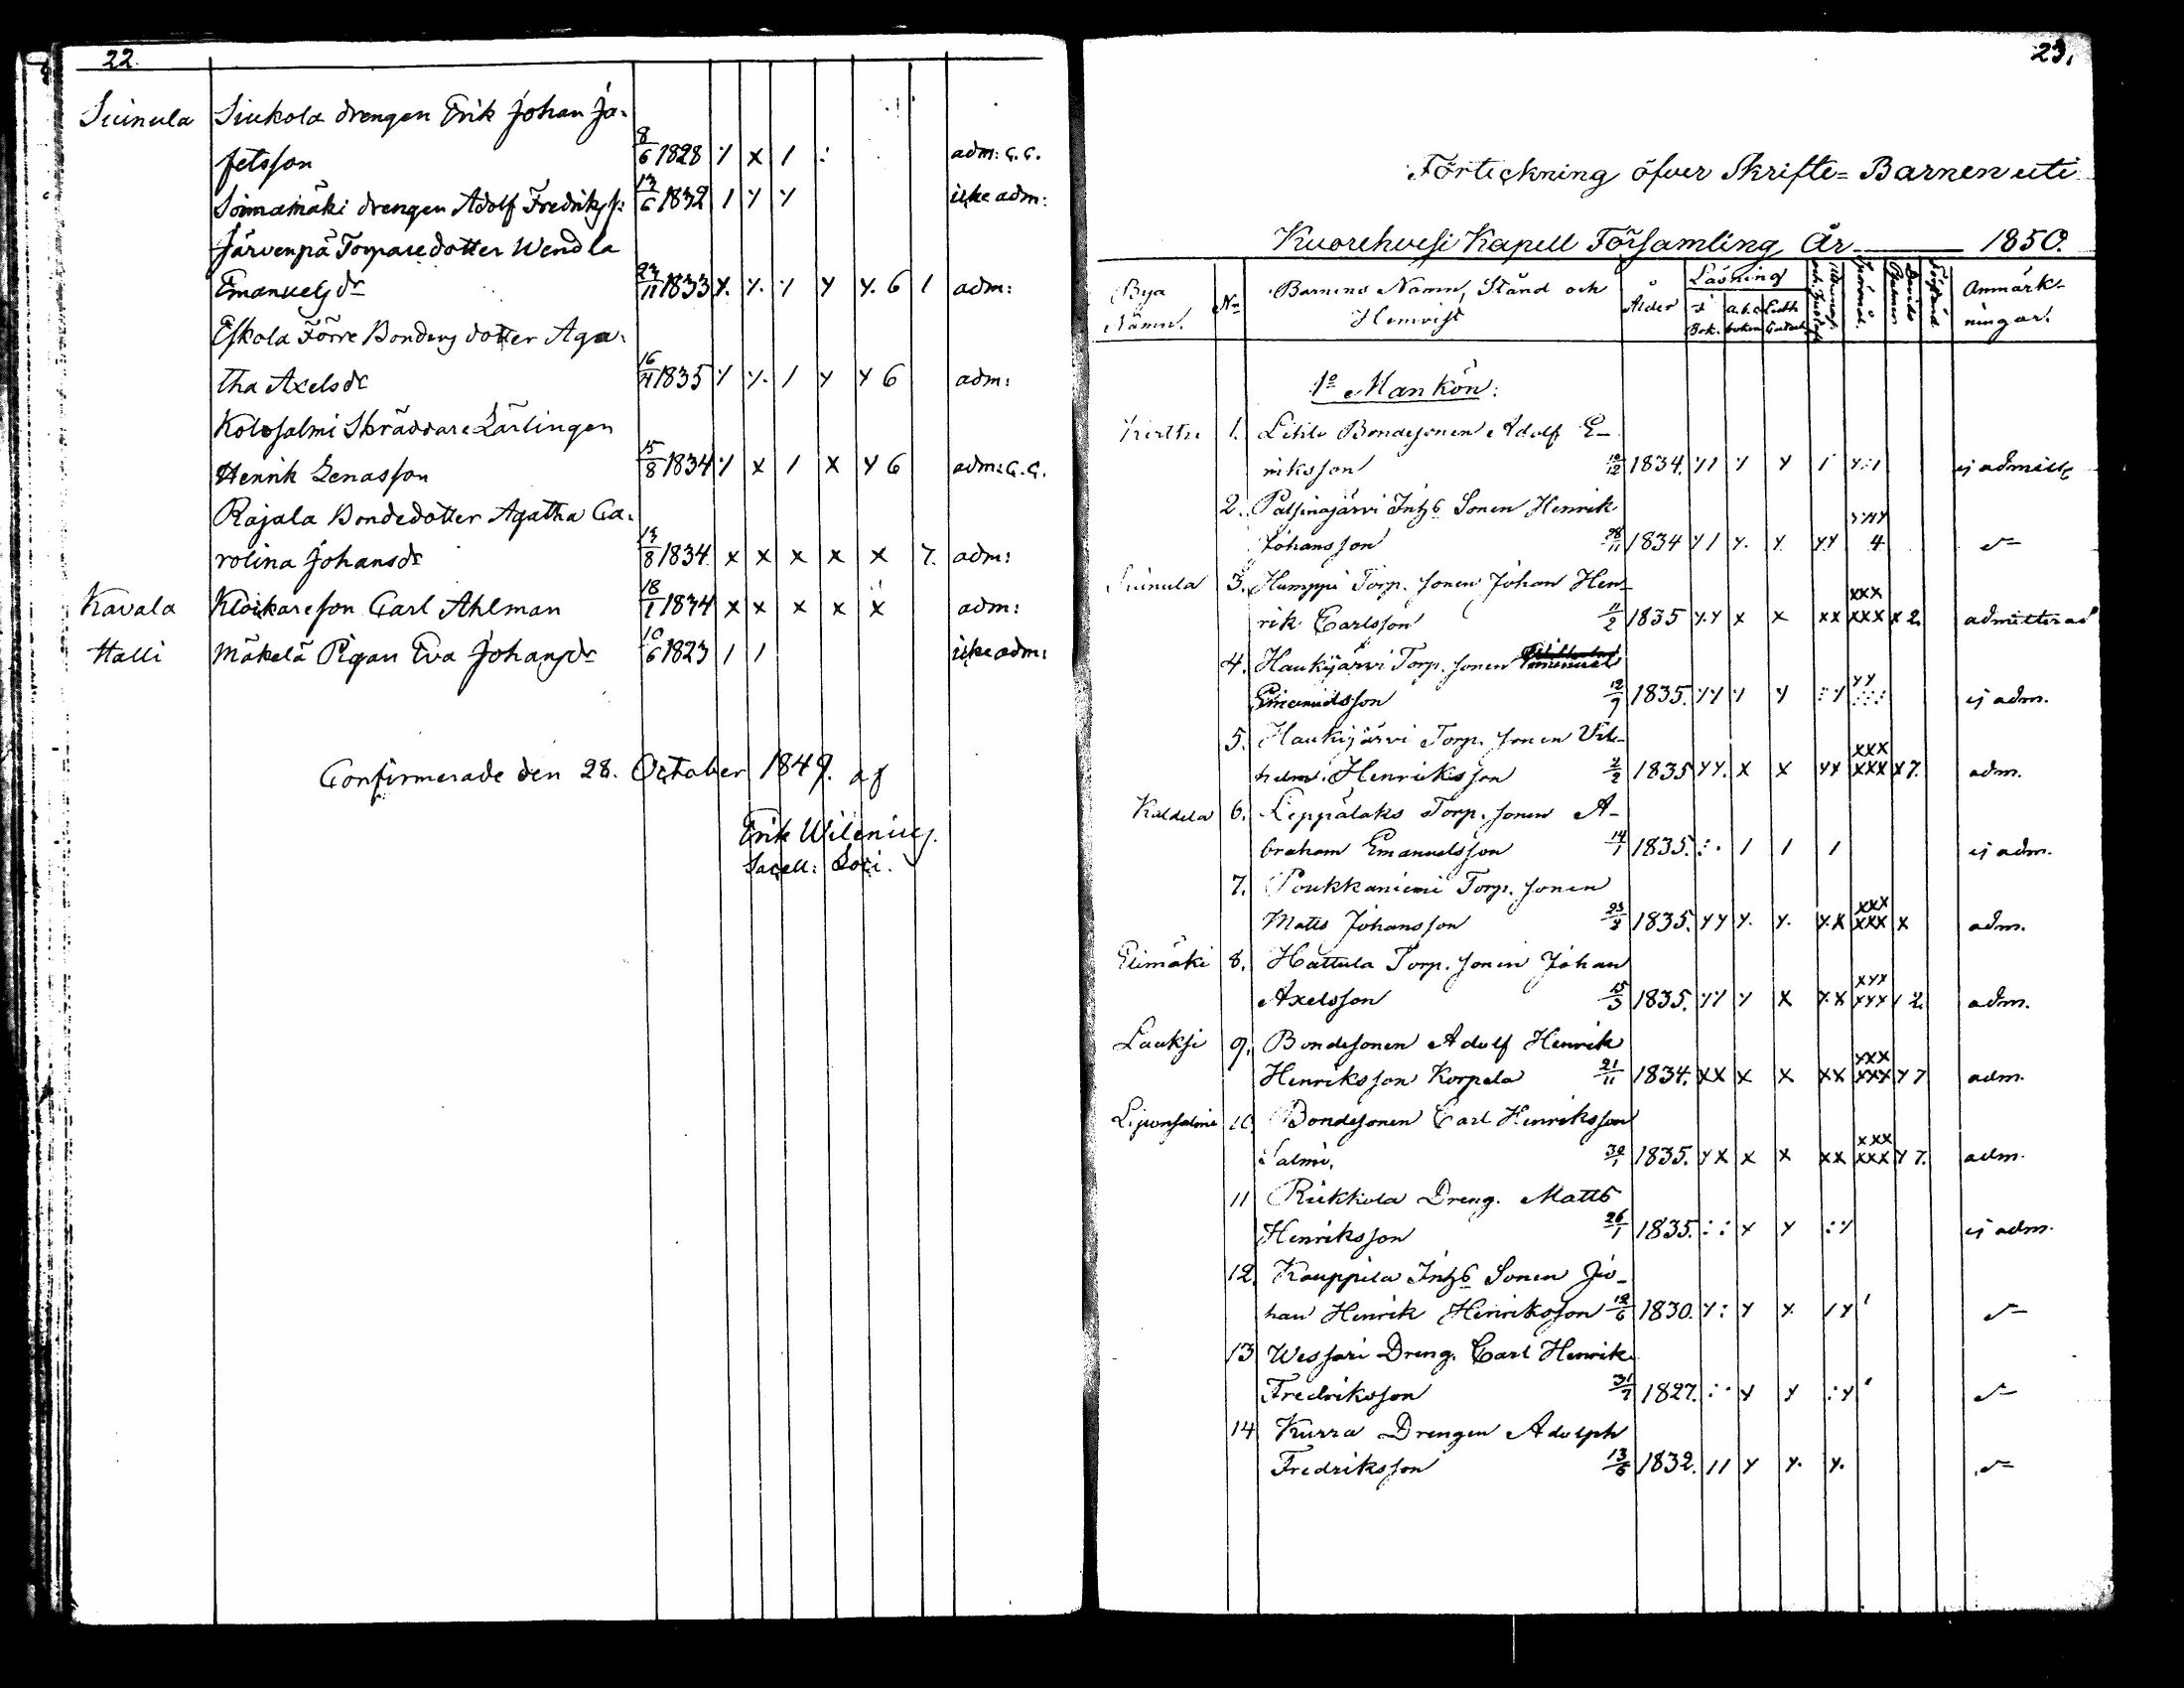 22.
Siukola drengen Erik Johan Ja-
fetsson 8/6 1828 adm: c.c.
drengen Adolf Fredriks s: 13/6 1832 icke adm:
Järvenpä Torparedotter Wendla
Emanuelsdr 23/11 1833 y. y. y y y. 6 1 adm:
Eskola Förre Bondens dotter Aga-
tha Axelsdr 16/11 1835 6 adm:
Kolosalmi Skräddare Lärlingen
Henrik Zenasson 15/8 1834 y x 1 x y 6 adm: c.c.
Rajala Bondedotter Agatha Ca-
rolina Johansdr 13/8 1834 x x x x x 7. adm:
Kavala Klockareson Carl Ahlman 18/1 1834 x x x x x adm:
Halli Mäkelä Pigan Eva Johansdr 10/6 1823 1 1 icke adm:
Confirmerade den 28. October 1849. af
Erik Wilenius.
Sacell: Loci.
23.
Förteckning öfver Skrifte= Barnen uti
Kuorehvesi Kapell Församling År 1850.
Bya Nämn. No Barnens Namn, Stånd och Hemvist Ålder Läsning i Bok. a.b.c. boken Anmärk-
ningar.
1o Mankön:
1. Bondesonen Adolf E-
riksson 1834. ej admitt
2. Sonen Henrik
Johansson 28/11 1834 4
3. Humppi Torp. sonen Johan Hen-
rik Carlsson 11/2 1835 x x xx xxx xxx x 2. admitterad
4. Haukijärvi Torp. sonen
Emanuelsson 12/9 1835. ej adm.
5. Haukijärvi Torp. sonen Vil-
helm Henriksson 1835 yy. x x yy xxx xxx x 7. adm.
6. Leppälaks Torp. sonen A-
braham Emanuelsson 14/1 1835. 1 1 1 ej adm.
7. Poukkaniemi Torp. sonen
Matts Johansson 1835. yy y. y. y.x xxx xxx x adm.
Elimäki 8. Hattula Torp. sonen Johan
Axelsson 15/3 1835. yy y x y.x xyx xyy 2. adm.
Lauksi 9. Bondesonen Adolf Henrik
Henriksson Korpela 21/11 1834. xx x x xx xxx xxx y 7 adm.
10. Bondesonen Carl Henriksson
Salmi. 30/1 1835. yx x x xx xxx xxx y 7. adm.
11 Dreng. Matts
Henriksson 26/1 1835. x y ej adm.
12. Kauppila Sonen Jo-
han Henrik Henriksson 1830.
13 Wessari Dreng. Carl Henrik
Fredriksson 31/7 1827.
14 Kurra Drengen Adolph
Fredriksson 13/6 1832. 11 y y. y.